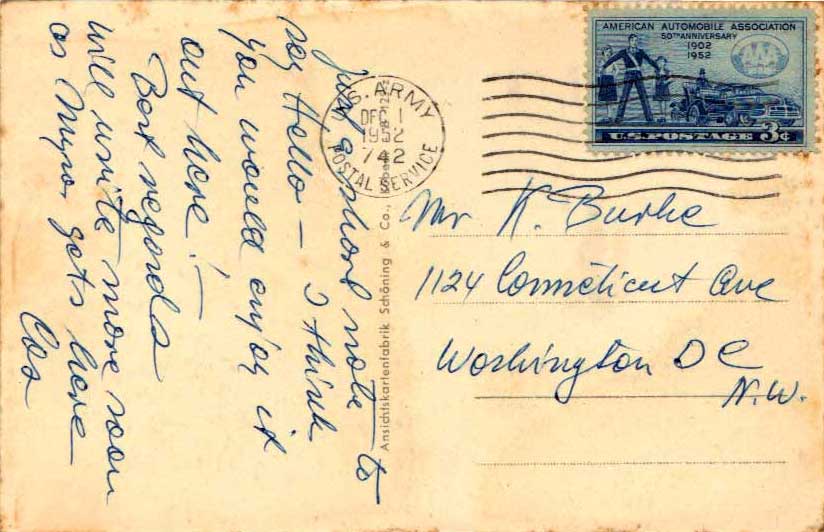 Just a short note to
say Hello - I think
you would enjoy it
out here! -
Best regards
will write more soon
as Myra gets here
AMERICAN AUTOMOBILE ASSOCIATION
50TH ANNIVERSARY
1902
1952
U.S. POSTAGE 3¢
U.S. ARMY
DEC 1
1952
742
POSTAL SERVICE
Ansichtskartenfabrik Schöning & Co.,
Mr K. Burke
1124 Connecticut Ave
Washington DC
N.W.